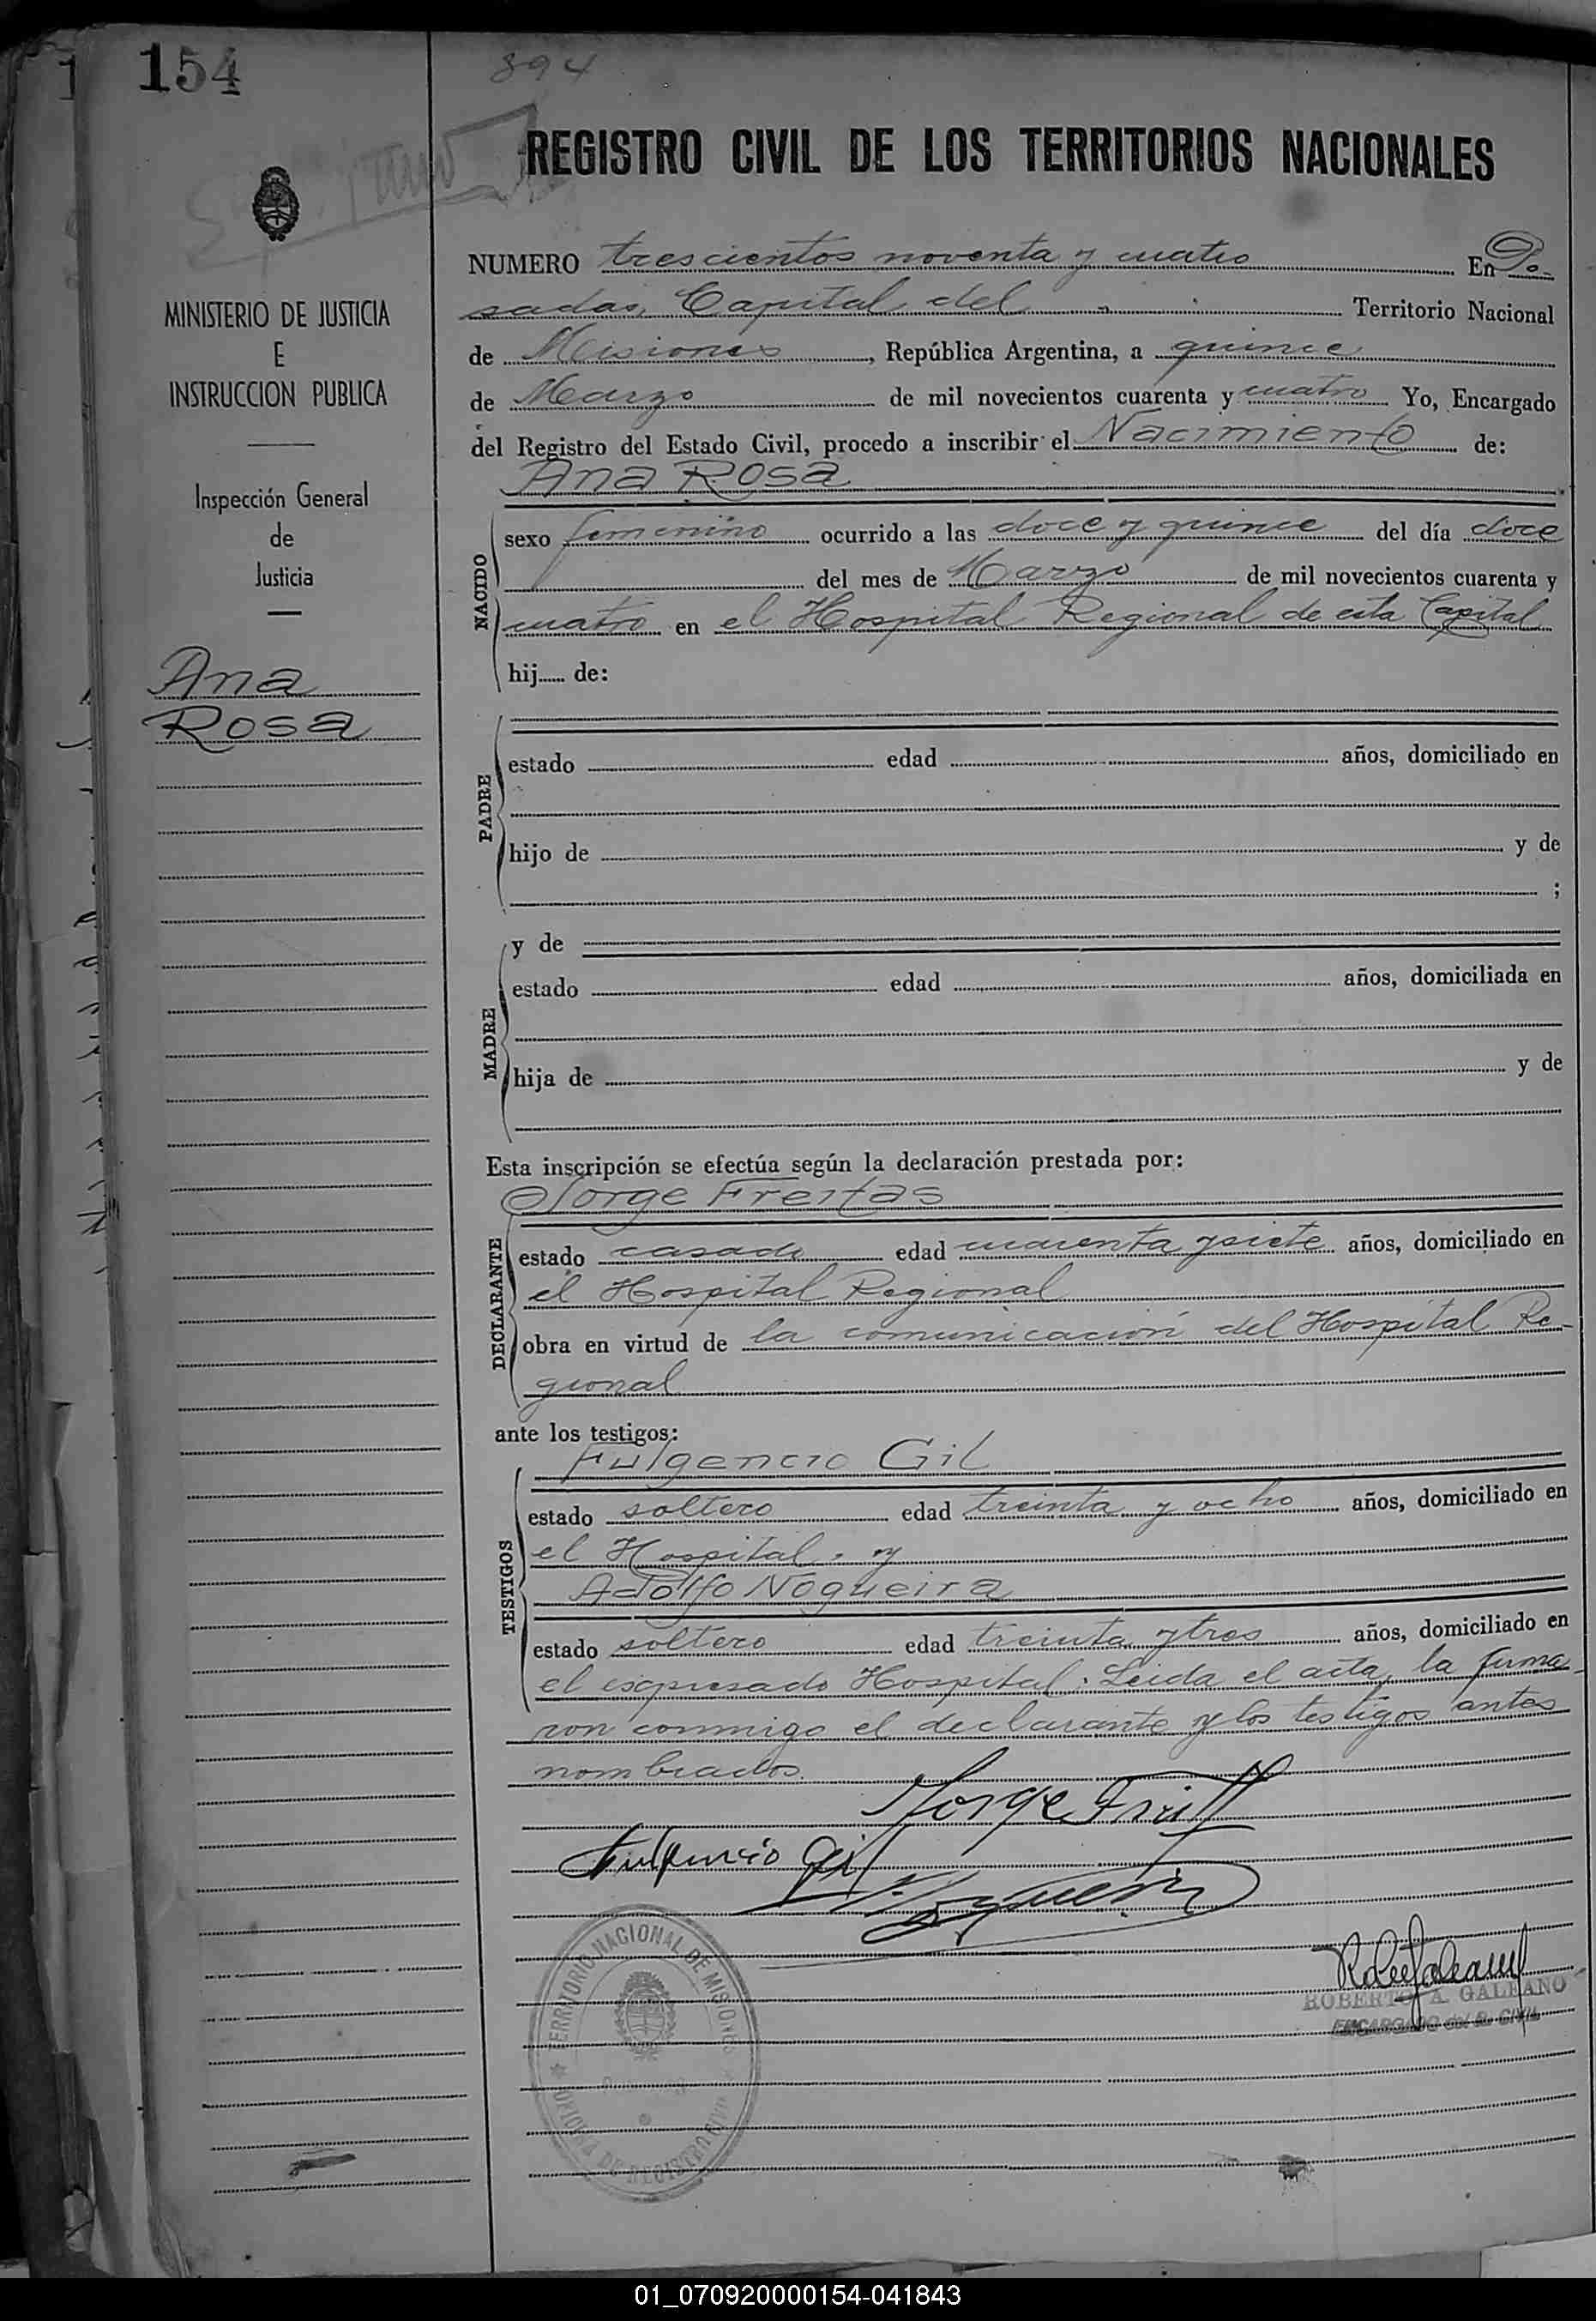 154
394
REGISTRO CIVIL DE LOS TERRITORIOS NACIONALES
MINISTERIO DE JUSTICIA
E
INSTRUCCION PUBLICA
Inspección General
de
Justicia
Ana
Rosa
NUMERO trescientos noventa y cuatro En Po-
sadas, Capital del Territorio Nacional
de Misiones, República Argentina, a quince
de Marzo de mil novecientos cuarenta y cuatro Yo, Encargado
del Registro del Estado Civil, procedo a inscribir el Nacimiento de:
Ana Rosa
NACIDO
sexo femenino ocurrido a las doce y quince del día doce
del mes de Marzo de mil novecientos cuarenta y
cuatro en el Hospital Regional de esta Capital
hij...... de:
PADRE
estado edad años, domiciliado en
hijo de y de
;
MADRE
y de
estado edad años, domiciliada en
hija de y de
Esta inscripción se efectúa según la declaración prestada por:
Jorge Freitas
DECLARANTE
estado casado edad cuarenta y siete años, domiciliado en
el Hospital Regional
obra en virtud de la comunicación del Hospital Re-
gional
ante los testigos:
Fulgencio Gil
TESTIGOS
estado soltero edad treinta y ocho años, domiciliado en
el Hospital, y
Adolfo Nogueira
estado soltero edad treinta y tres años, domiciliado en
el expresado Hospital. Leida el acta, la firma-
ron conmigo el declarante y los testigos antes
nombrados.
Jorge Freitas
Fulgencio Gil
Nogueira
TERRITORIO NACIONAL DE MISIONES
OFICINA DE REGISTRO CIVIL
ROBERTO A. GALEANO
ENCARGADO DEL R. CIVIL
01_070920000154-041843